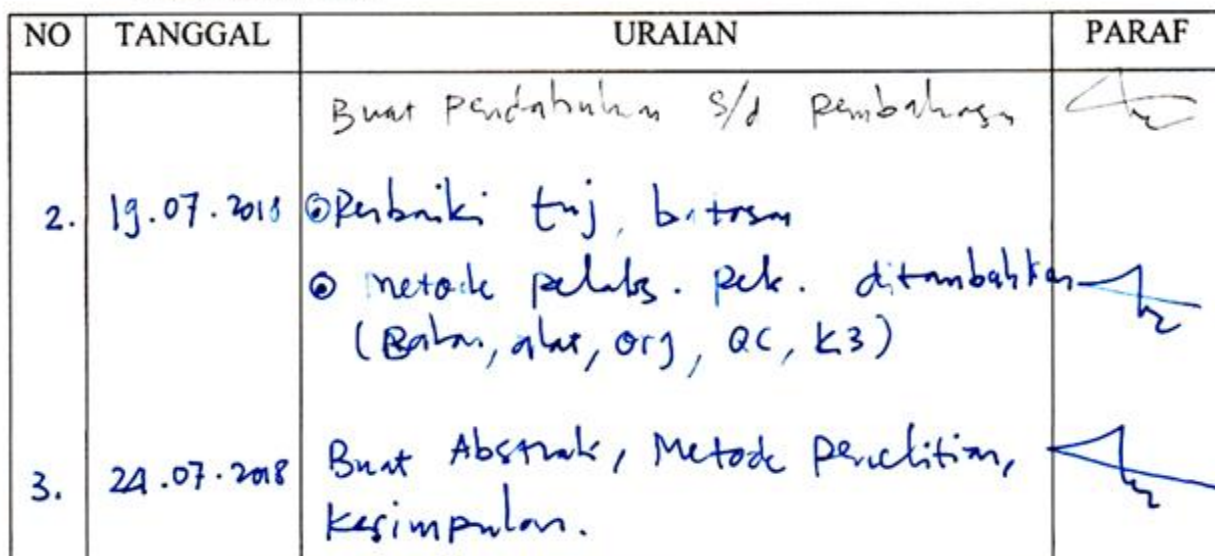 NO TANGGAL URAIAN PARAF
Buat Pendahuluan s/d pembahasan
2. 19.07.2018 Perbaiki tuj, batasan
metode pelaks. pek. ditambahkan
(Bahan, alat, org, QC, K3)
3. 24.07.2018 Buat Abstrak, Metode penelitian,
Kesimpulan.